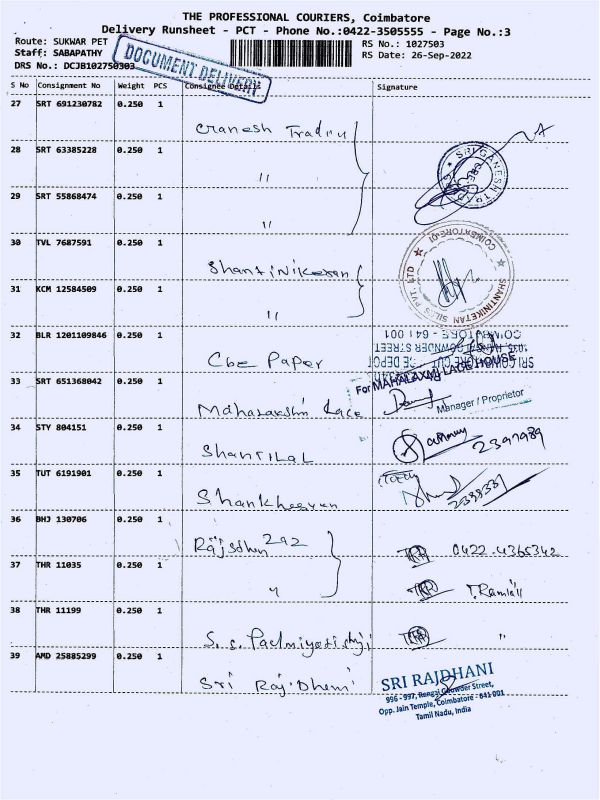 THE PROFESSIONAL COURIERS, Coimbatore
Delivery Runsheet - PCT - Phone No.:0422-3505555 - Page No.:3
Route: SUKWAR PET
RS No.: 1027503
Staff: SABAPATHY
RS Date: 26-Sep-2022
DRS No.: DCJB102750303
DOCUMENT DELIVERY
S No Consignment No Weight PCS Consignee Details Signature
27 SRT 691230782 0.250 1
28 SRT 63385228 0.250 1 "
29 SRT 55868474 0.250 1 "
SRI GANESH
30 TVL 7687591 0.250 1 Shantinikesan
31 KCM 12584509 0.250 1 "
SHANTINIKETAN SILKS PVT. LTD
COIMBATORE-01
32 BLR 1201109846 0.250 1 Cbe Paper
COIMBATORE - 641 001
For MAHALAXMI LACE HOUSE
33 SRT 651368042 0.250 1 Lace
Manager / Proprietor
34 STY 804151 0.250 1 Shantilal
35 TUT 6191901 0.250 1
36 BHJ 130706 0.250 1 0422-4365342
37 THR 11035 0.250 1 " T.Ramlal
38 THR 11199 0.250 1 "
39 AMD 25885299 0.250 1 Sri
SRI RAJDHANI
996 - 997, Rengai Gowder Street,
Opp. Jain Temple, Coimbatore - 641 001
Tamil Nadu, India